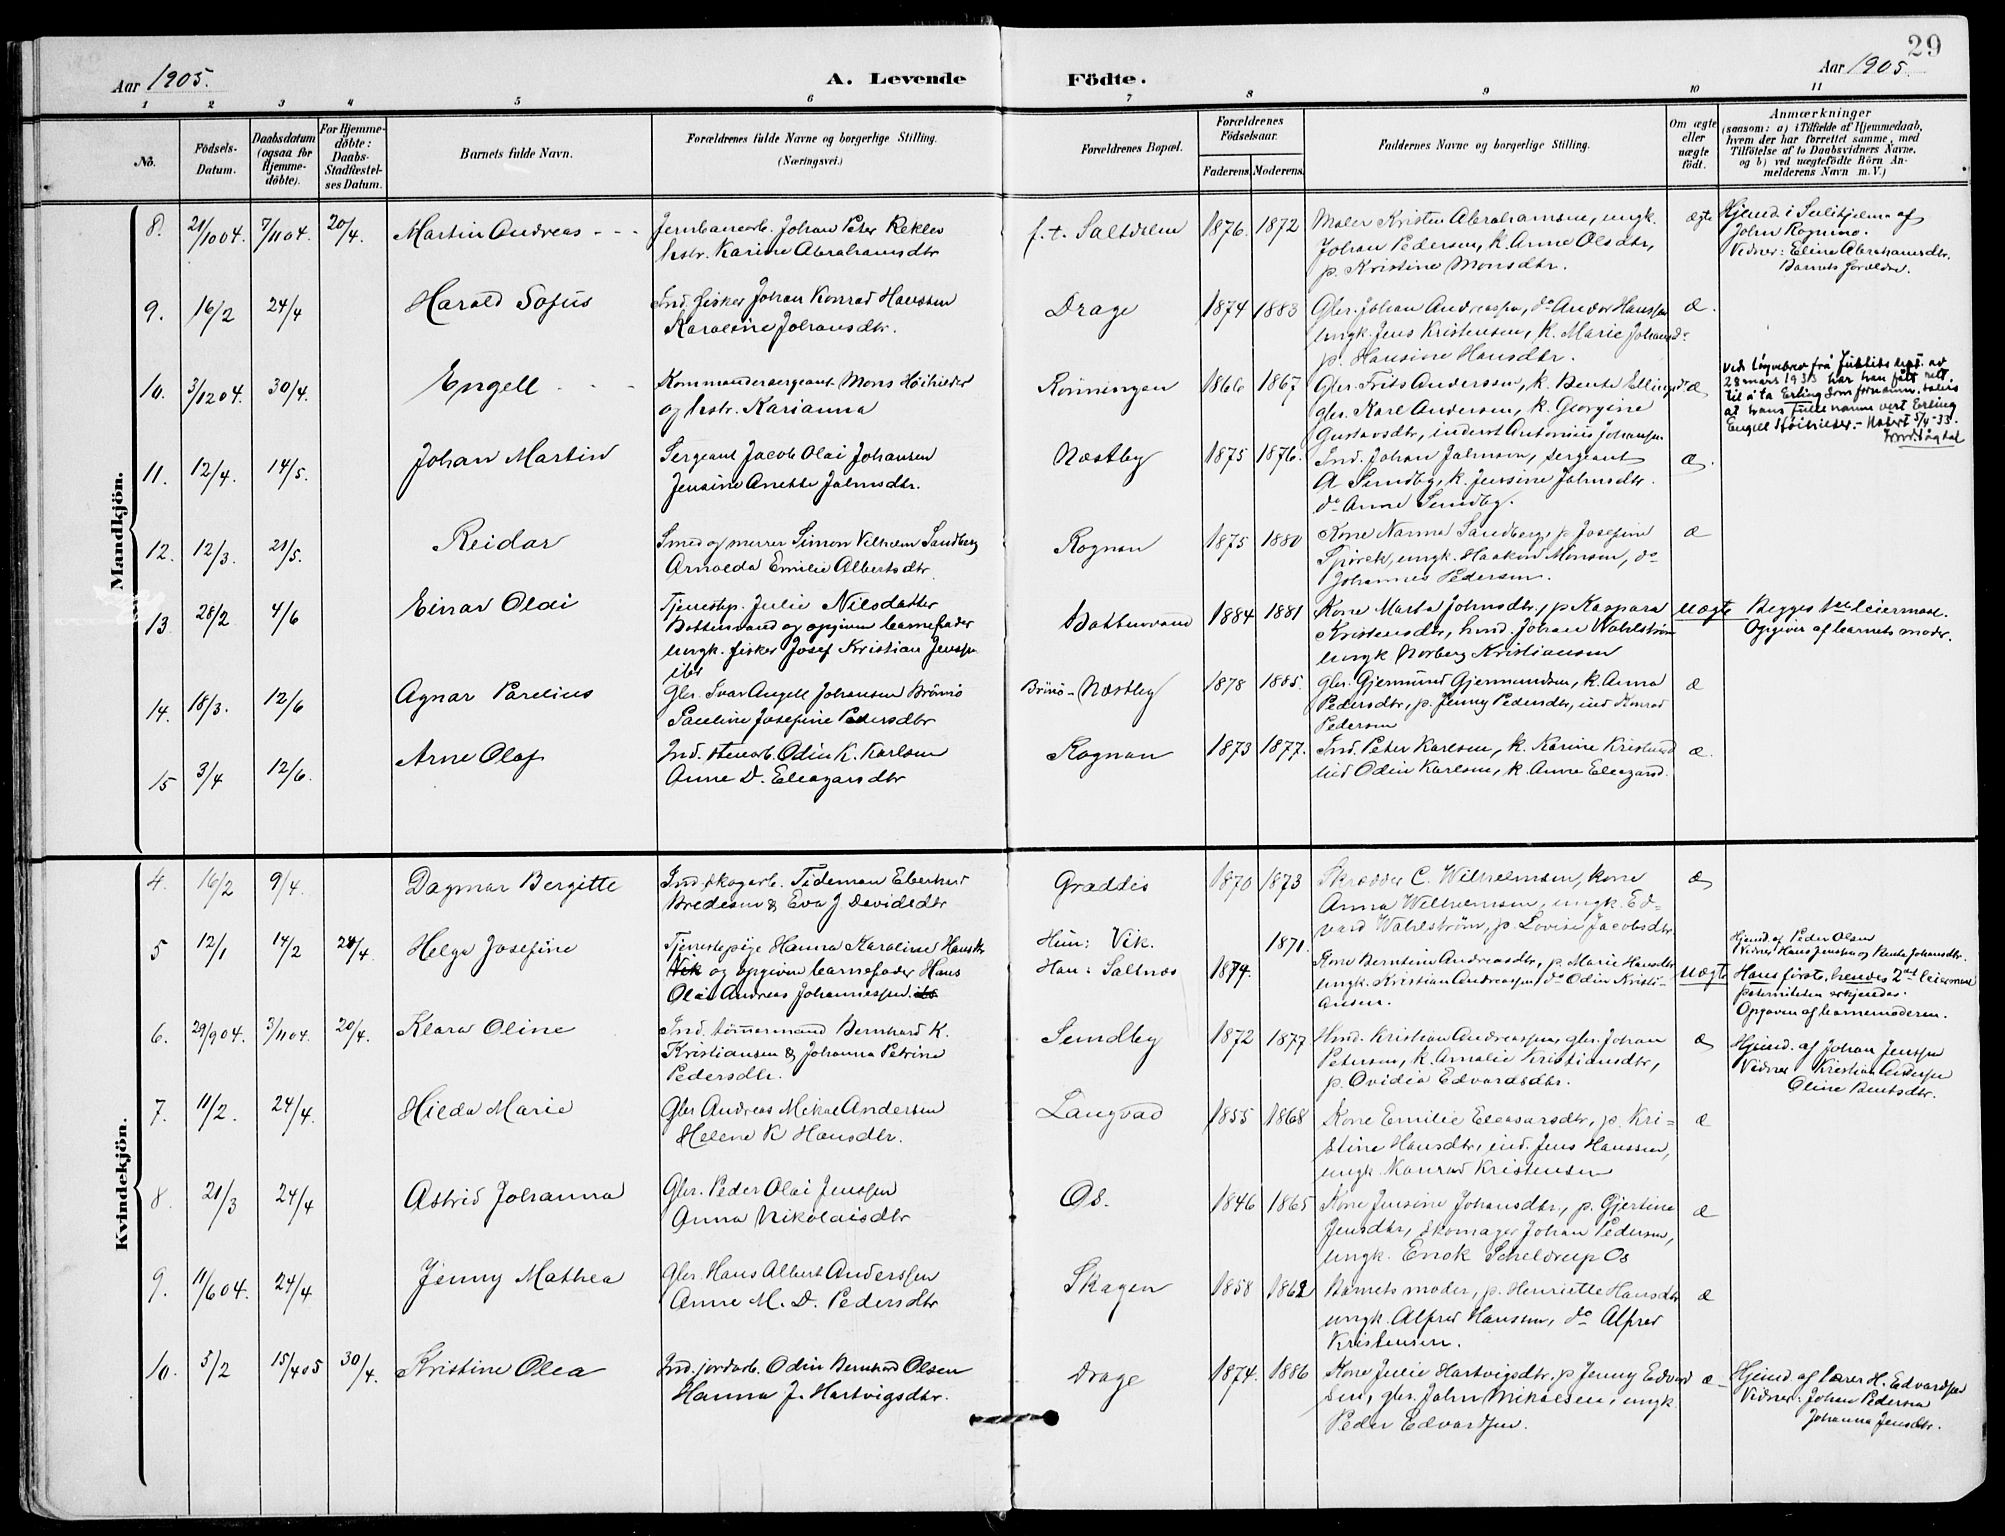 29
Aar 1905.
A. Levende Födte.
Aar 1905.
1 2 3 4 5 6 7 8 9 10 11
No.
Födsels-Datum.
Daabsdatum (ogsaa for Hjemme-döbte).
For Hjemme-döbte: Daabs-Stadfæstel-ses Datum.
Barnets fulde Navn.
Forældrenes fulde Navne og borgerlige Stilling. (Næringsvei.)
Forældrenes Bopæl.
Forældrenes Födselsaar.
Faderens. Moderens.
Faddernes Navne og borgerlige Stilling.
Om ægte eller uægte födt.
Anmærkninger
(saasom: a) i Tilfælde af Hjemmedaab, hvem der har forrettet samme, med Tilföielse af to Daabsvidners Navne, og b) ved uægtefödte Börn An-melderens Navn m.V.)
Mandkjön.
8. 21/10 04. 7/11 04. 20/4. Martin Andreas Jernbanearb. Johan Peter Reklev f.t. Saltdalen 1876. 1872 Maler Kristen Abrahamsen, ungk. ægte Hjemd. i Sulitjelma af
hstr. Karine Abrahamsdtr Johan Pedersen, k. Anne Olsdtr, John Rognmo.
p. Kristine Monsdtr. Vidner: Eline Abrahamsdtr.
Barnets forældre.
9. 16/2 24/4 Harald Sofus Ind. fisker Johan Konrad Hanssen Drage 1874 1883 Gbr. Johan Andreassen, do Andor Hanssen æ.
Karoline Johansdtr. ungk. Jens Kristensen, k. Marie Johansd.
p. Hansine Hansdtr.
10. 3/12 04. 30/4. Engell Kommandersergeant Mons Höihilder Rönningen 1866 1867 Gbr. Frits Anderssen, k. Bente Ellingsd. æ
og hstr. Karianna gbr. Karl Andersen, k. Georgine
Gustavsdtr, inderst Antonius Johansen
28 mars 1933 har han fått rett
til å ta Erling som fornamn, soleis
at hans fulle namn vert Erling
Engell Höihilder. - Notert 5/4-33.
11. 12/4. 14/5. Johan Martin Sergeant Jacob Olai Johansen Næstby 1875 1876. Ind. Johan Jahnsen, sergeant æ.
Jensine Anette Jahnsdtr. A Sundby, k. Jensine Jahnsdtr.
do Anne Sundby.
12. 12/3. 21/5. Reidar Smed og murer Simon Vilhelm Sandberg Rognan 1875 1880 Kone Nanna Sandberg, p. Josefine æ
Arnolda Emilie Albertsdtr. Spörck, ungk. Haakon Monsen, do
Johannes Pedersen.
13. 28/2 4/6 Einar Olai Tjenestep. Julie Nilsdatter Botnvand 1884 1881 Kone Marta Johnsdtr, p. Kaspara uægte Begges 1ste leiermaal.
Bottenvand og opgiven barnefader Kristensdtr, hmd. Johan Wahlström Opgiver af barnets moder.
ungk. fisker Josef Kristian Jenssen ungk Norberg Kristiansen
ibd
14. 18/3. 12/6 Agnar Parelius Gbr. Ivar Angell Johansen Brönö Brönö-Næstby 1878 1885. Gbr. Gjermund Gjermundsen, k. Anna æ
Pauline Josefine Pedersdtr Pedersdtr, p. Jenny Pedersdtr, ind Konrad
Pedersen
15 3/4 12/6. Arne Olaf Ind. stenarb. Odin K. Karlsen Rognan 1873 1877. Ind. Peter Karlsen, k. Karine Kristensd æ.
Anne D. Eleazarsdtr ind Odin Karlsen, k. Anne Eleazarsd.
Kvindekjön.
4. 16/2 9/4. Dagmar Bergitte Ind. skogarb. Tideman Eberhard Graddis 1870 1873 Skrædder C. Wilhelmsen, kone æ
Bredesen & Eva J. Davidsdtr Anna Wilhelmsen, ungk. Ed-
vard Wahlström, p. Lovise Jacobsdtr
5 12/1 14/2 24/4. Helga Josefine Tjenestepige Hanna Karoline Hansdtr Hun: Vik. 1871. Kone Berntine Andreasdtr, p. Marie Hansdtr Hjemd. af Peder Olsen
Vik og opgiven barnefader Hans Han: Saltnæs 1874. ungk. Kristian Andreassen, do Odin Kristi- uægte Vidner Hans Jensen og Bente Johansdtr.
Olai Andreas Johannessen ibd ansen. Hans förste, hendes 2det leiermaal
paterniteten erkjendes.
Opgaven af barnemoderen.
6. 29/9 04. 3/11 04. 20/4. Klara Oline Ind. tömmermand Bernhard K. Sundby 1872 1877 Hmd. Kristian Andreassen, gbr. Johan æ Hjemd. af Johan Jenssen
Kristiansen & Johanna Petrine Petersen, k. Amalie Kristiansdtr, Vidner Kristian Andersen
Pedersdtr. p. Ovidia Edvardsdtr. Oline Bentsdtr.
7. 11/2. 24/4. Hilda Marie Gbr Andreas Mikal Andersen Langvad 1855 1868 Kone Emilie Eleasarsdtr, p. Kri- æ
Helene K Hansdtr. stine Hansdtr, ind. Jens Hanssen,
ungk. Konrad Kristensen
8. 21/3 24/4 Astrid Johanna Gbr. Peder Olai Jenssen Os. 1846 1865 Kone Jensine Johansdtr, p. Gjertine æ
Anna Nikolaisdtr Jensdtr, skomager Johan Pedersen,
ungk. Enok Scheldrup Os
9. 11/6 04. 24/4 Jenny Mathea Gbr. Hans Albert Anderssen Skagen 1858 1862 Barnets moder, p. Henriette Hansdtr æ
Anne M. D. Pedersdtr ungk. Alfred Hanssen, do Alfred
Kristensen.
10. 5/2 15/4 05 30/4. Kristine Olea Ind. jordarb. Odin Bernhard Olsen Drage 1874. 1886 Kone Julie Hartvigsdtr, p Jenny Edvard æ Hjemd af lærer H. Edvardsen
Hanna J. Hartvigsdtr. sen, gbr. John Mikalsen, ungk Vidner: Johan Pedersen
Peder Edvardsen. Johanna Jensdtr.